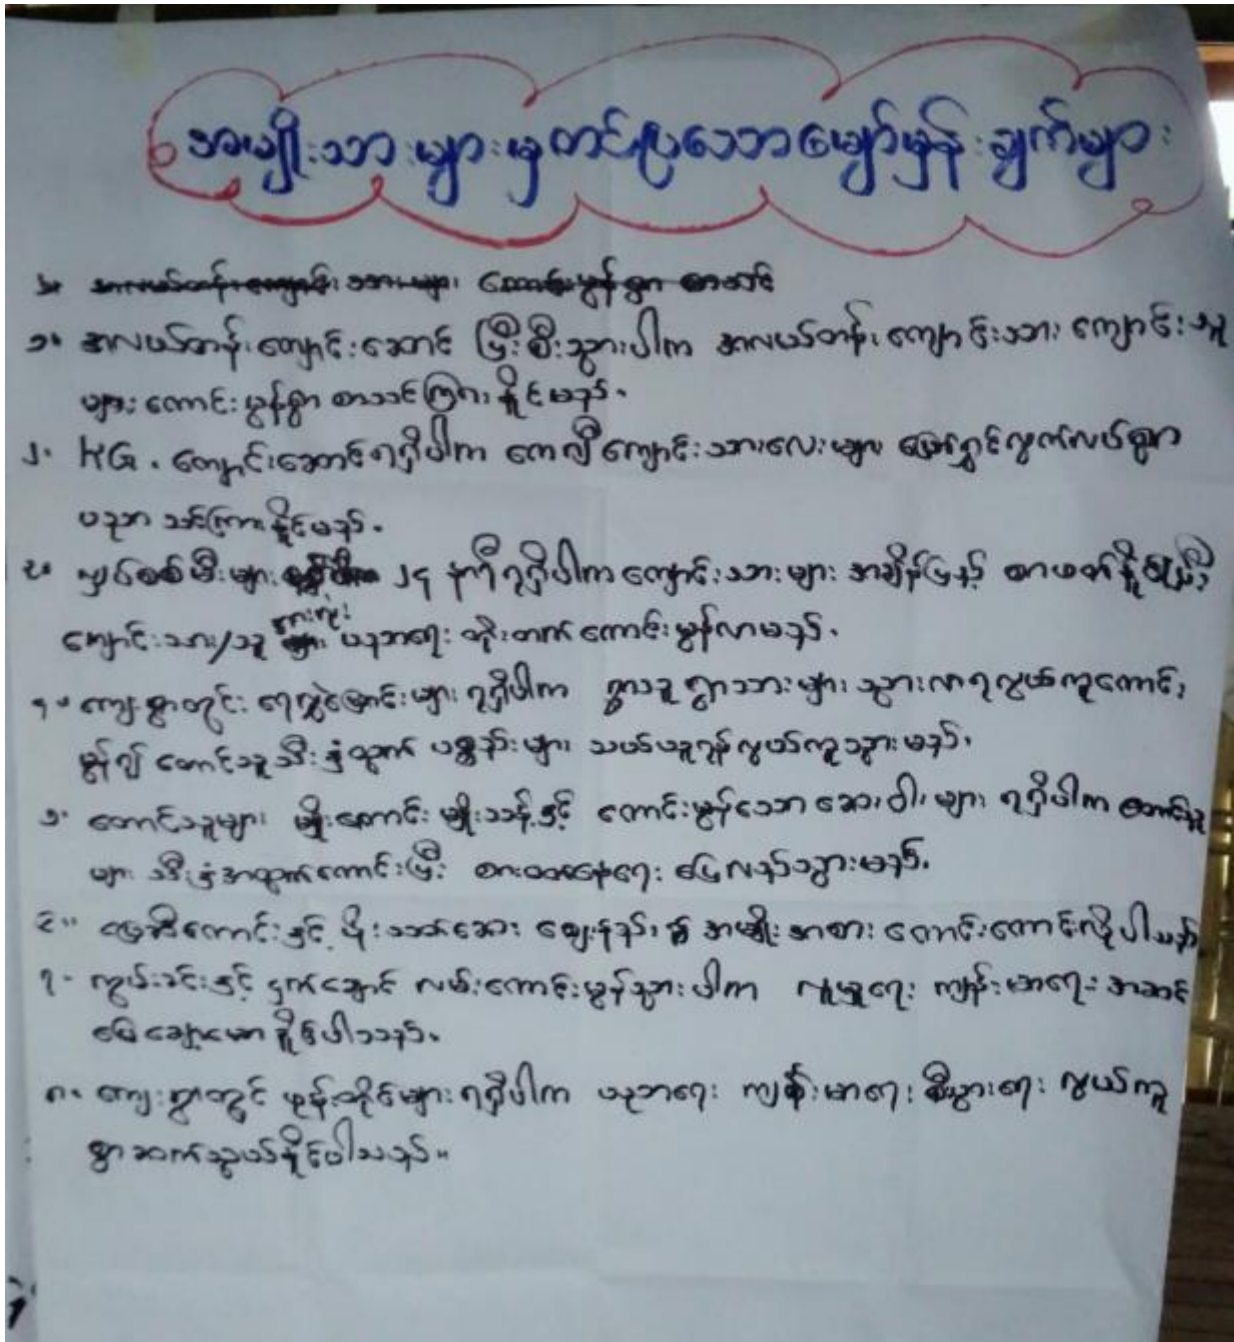 အမျိုးသားများမှတင်ပြသောမျှော်မှန်းချက်များ
၁။ အလယ်တန်းကျောင်းဆောင် ပြီးစီးသွားပါက အလယ်တန်းကျောင်းသား ကျောင်းသူ
များ ကောင်းမွန်စွာ စာသင်ကြားနိူင်မည်။
၂။ KG. ကျောင်းဆောင်ရရှိပါက ကေဂျီကျောင်းသားလေးများ ပျော်ရွှင်လွတ်လပ်စွာ
ပညာ သင်ကြားနိူင်မည်။
၃။ လျှပ်စစ်မီးများ ၂၄ နာရီ ရရှိပါက ကျောင်းသားများ အချိန်ပြည့် စာဖတ်နိူင်
ကျောင်းသား/သူ ပညာရေး တိုးတက်ကောင်းမွန်လာမည်။
၄။ ကျေးရွာတွင်း ရေလွှဲမြောင်းများ ရရှိပါက ရွာသူရွာသားများ သွားလာရလွယ်ကူကောင်း
မွန်၍ တောင်သူသီးနှံထွက် ပစ္စည်းများ သယ်ယူရန်လွယ်ကူသွားမည်၊
၅။ တောင်သူများ မျိုးကောင်း မျိုးသန့်နှင့် ကောင်းမွန်သောဆေးဝါးများ ရရှိပါက တောင်သူ
များ သီးနှံအထွက်ကောင်းပြီး စားဝတ်နေရေး ပြေလည်သွားမည်။
၆။ မြေဩဇာကောင်းနှင့် ပိုးသတ်ဆေး ဈေးနည်း၍ အမျိုးအစား ကောင်းကောင်းလိုပါသည်
၇။ ကွပ်ခင်းနှင့် ဆက်သွယ်လမ်းကောင်းမွန်သွားပါက လူမှုရေး ကျန်းမာရေး အဆင်
ပြေချောမောနိူင်ပါသည်။
၈။ ကျေးရွာတွင် ဖုန်းတိုင်များရရှိပါက ပညာရေး ကျန်းမာရေး စီးပွားရေး လွယ်ကူ
စွာဆက်သွယ်နိူင်ပါသည်။